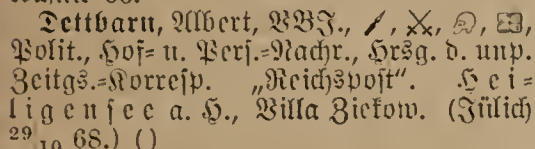 Tettbarn, Albert, VBJ., , ⚔, , ,
Polit., Hof= u. Pers.=Nachr., Hrsg. d. unp.
Zeitgs.=Korresp. „Reichspost“. Hei=
ligensee a. H., Villa Ziekow. (Jülich
29 10 68.) ()